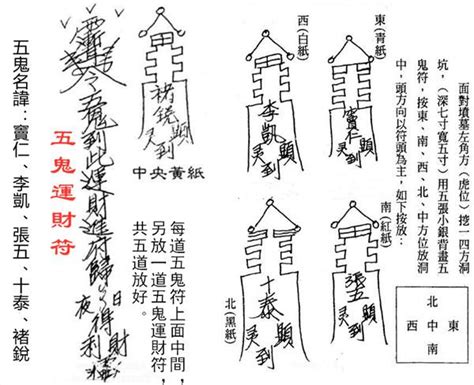 面對墳墓左角方(虎位)挖一四方洞
坑,(深七寸寬五寸)用五張小銀背畫五
鬼符,按東、南、西、北、中方位放洞
中,頭方向以符頭為主,如下按放:
北
西中東
南
東(青紙)
竇仁
顯
灵到
西(白紙)
李凱
顯
灵到
南(紅紙)
張五
顯
灵到
北(黑紙)
十泰
顯
灵到
褚銳
顯
灵到
中央黃紙
每道五鬼符上面中間,
另放一道五鬼運財符,
共五道放好。
令五鬼到此運財進符歸
日夜
得財
利
五鬼運財符
五鬼名諱:竇仁、李凱、張五、十泰、褚銳